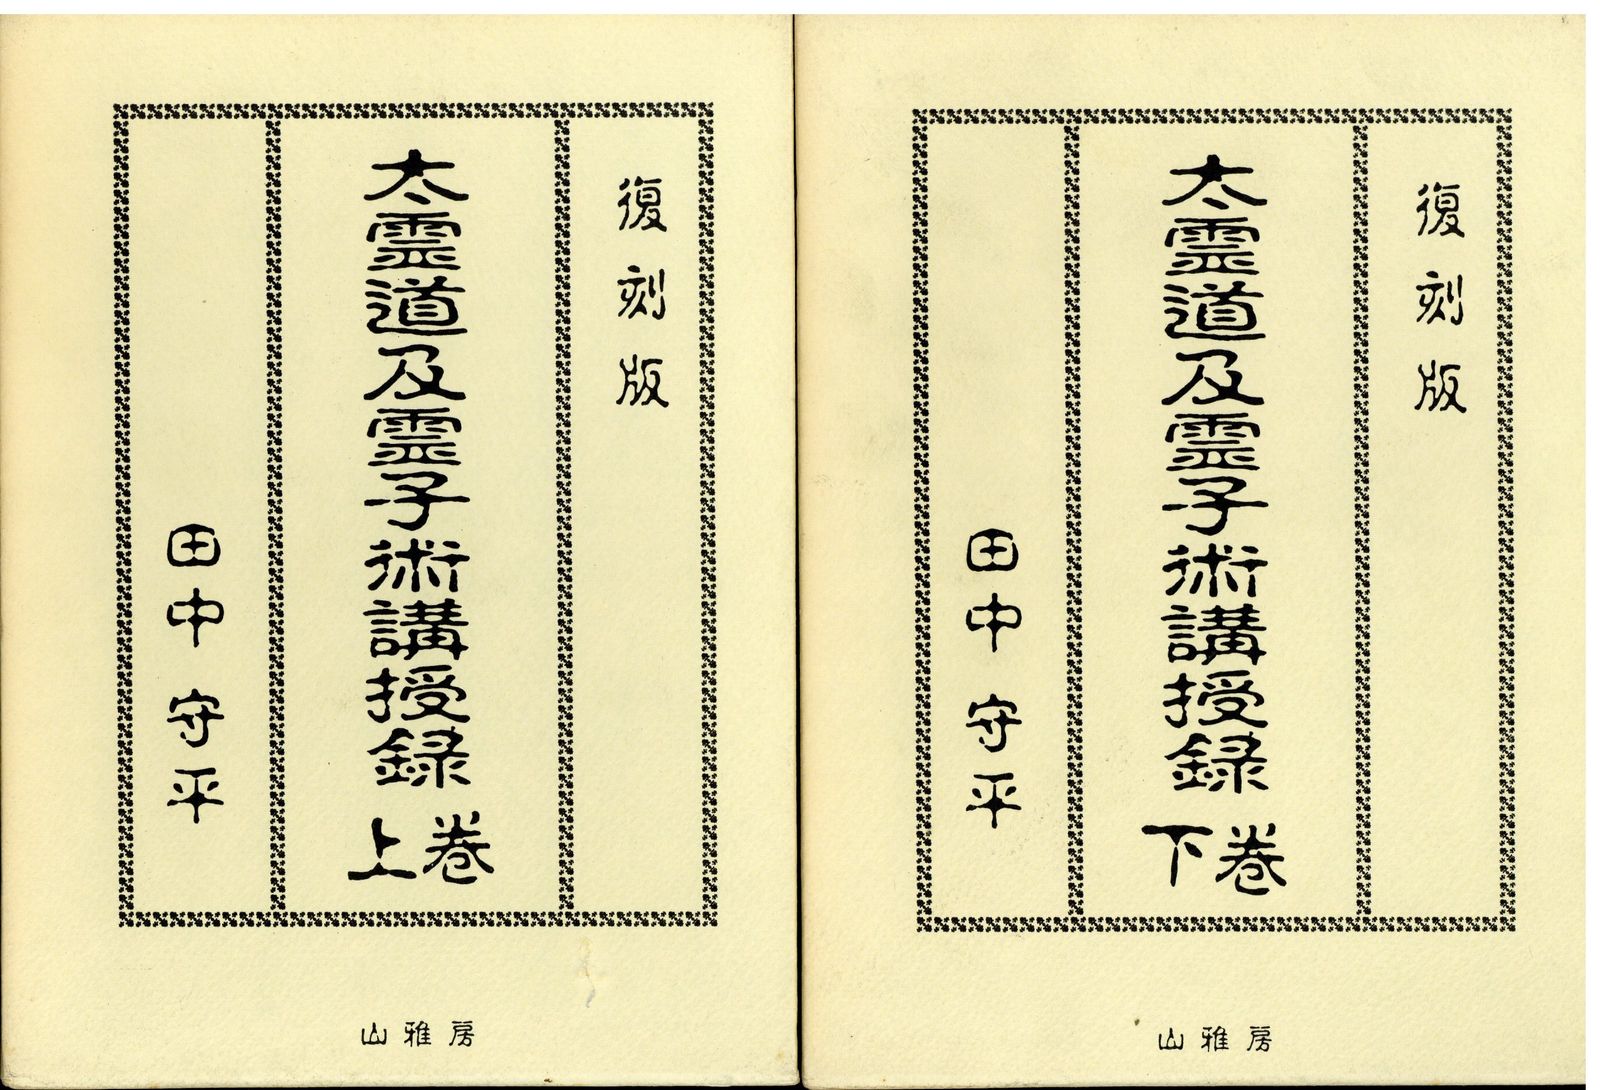 復刻版
太霊道及霊子術講授録 上巻
田中守平
山雅房
復刻版
太霊道及霊子術講授録 下巻
田中守平
山雅房